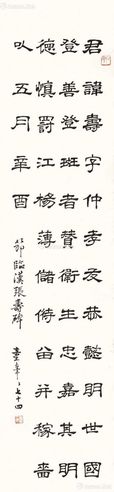 君諱壽字仲孝友恭懿明世國
登善登班者贊衛生忠嘉其明
德慎罰江楊薄儲偫并稼嗇
以五月辛酉
節臨漢張壽碑
七十四